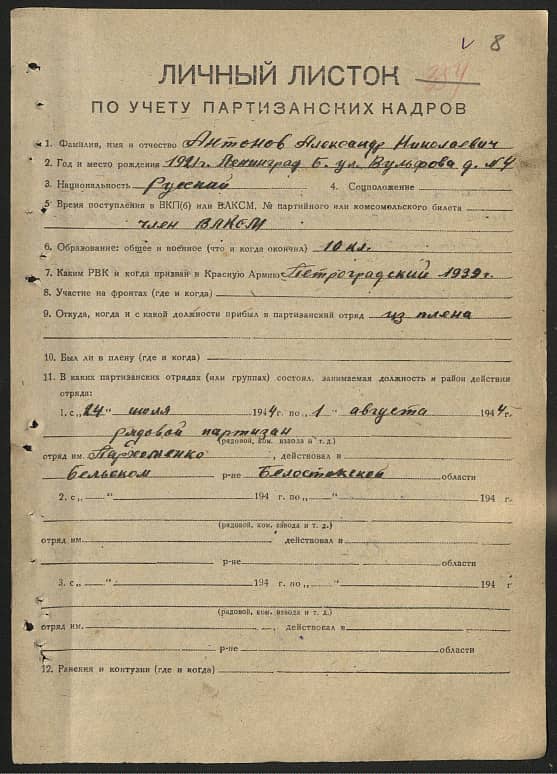 8
ЛИЧНЫЙ ЛИСТОК
ПО УЧЕТУ ПАРТИЗАНСКИХ КАДРОВ
1. Фамилия, имя и отчество Антонов Александр Николаевич
2. Год и место рождения 1921г. Ленинград Б. ул. Вульфова д. №4
3. Национальность Русский 4. Соцположение
5. Время поступления в ВКП(б) или ВЛКСМ, № партийного или комсомольского билета
член ВЛКСМ
6. Образование: общее и военное (что и когда окончил) 10 кл.
7. Каким РВК и когда призван в Красную Армию Петроградский 1939 г.
8. Участие на фронтах (где и когда)
9. Откуда, когда и с какой должности прибыл в партизанский отряд из плена
10. Был ли в плену (где и когда)
11. В каких партизанских отрядах (или группах) состоял, занимаемая должность и район действия
отряда:
1. с „24" июля 1944г. по „1" августа 1944г.
рядовой партизан
(рядовой, ком. взвода и т. д.)
отряд им. Пархоменко, действовал в
Бельском р-не Белостокской области
2. с „ " 194 г. по „ " 194 г.
(рядовой, ком. взвода и т. д.)
отряд им. действовал в
р-не области
3. с „ " 194 г. по „ " 194 г
(рядовой, ком. взвода и т. д.)
отряд им. , действовал в
р-не области
12. Ранения и контузии (где и когда)